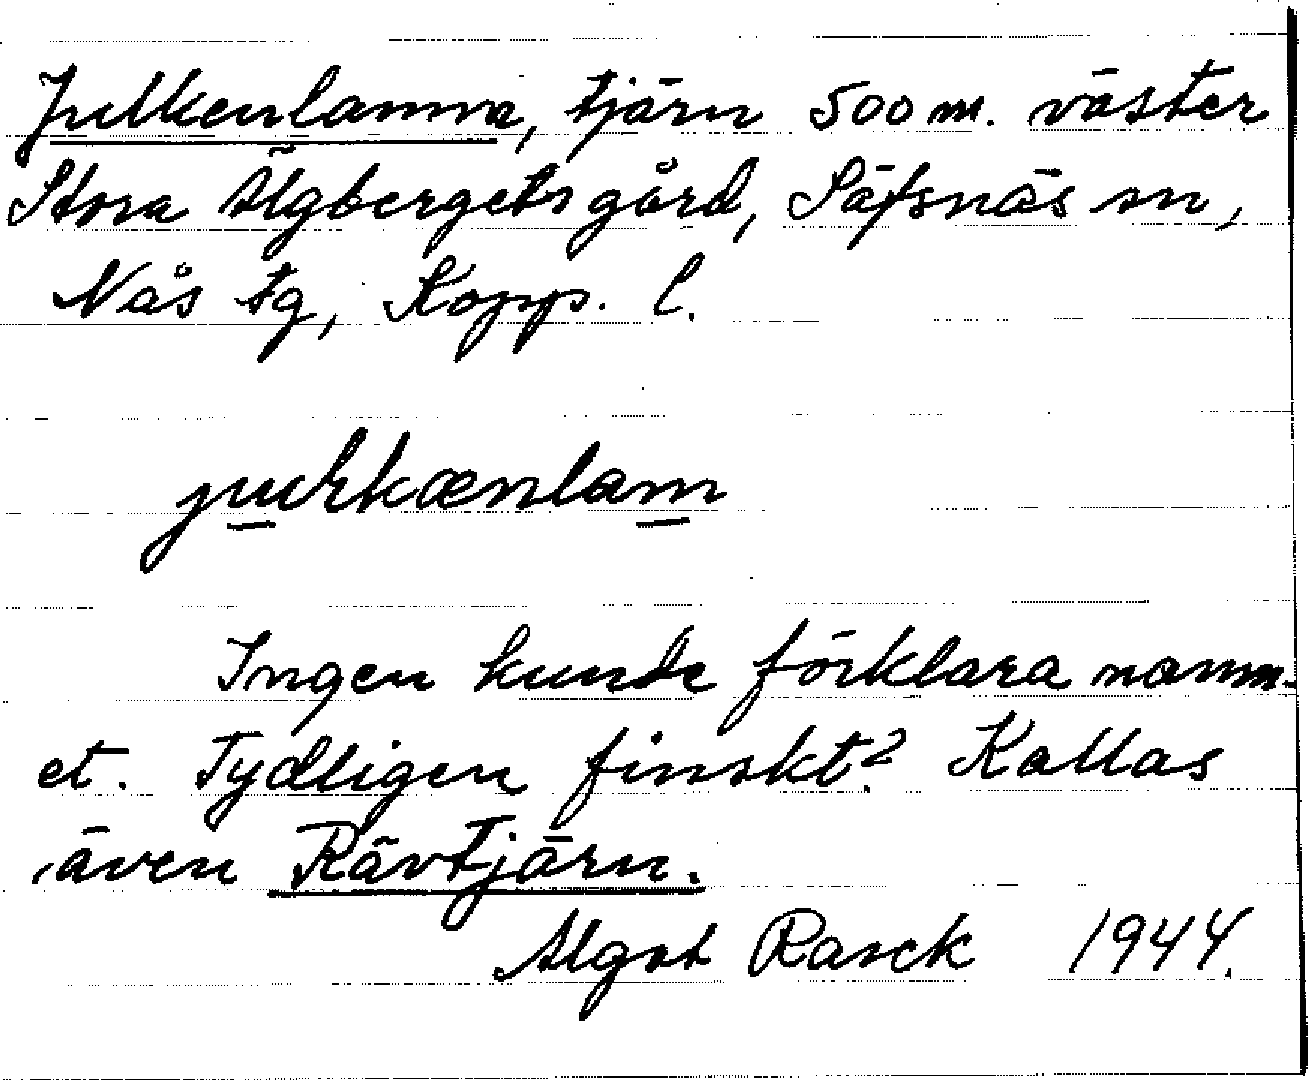 Julkenlamm, tjärn 500 m. väster
Stora Älgbergets gård, Säfsnäs sn,
Nås tg, Kopp. l.
Ingen kunde förklara namn-
et. Tydligen finskt? Kallas
även Rävtjärn.
Algot Rasck 1944.